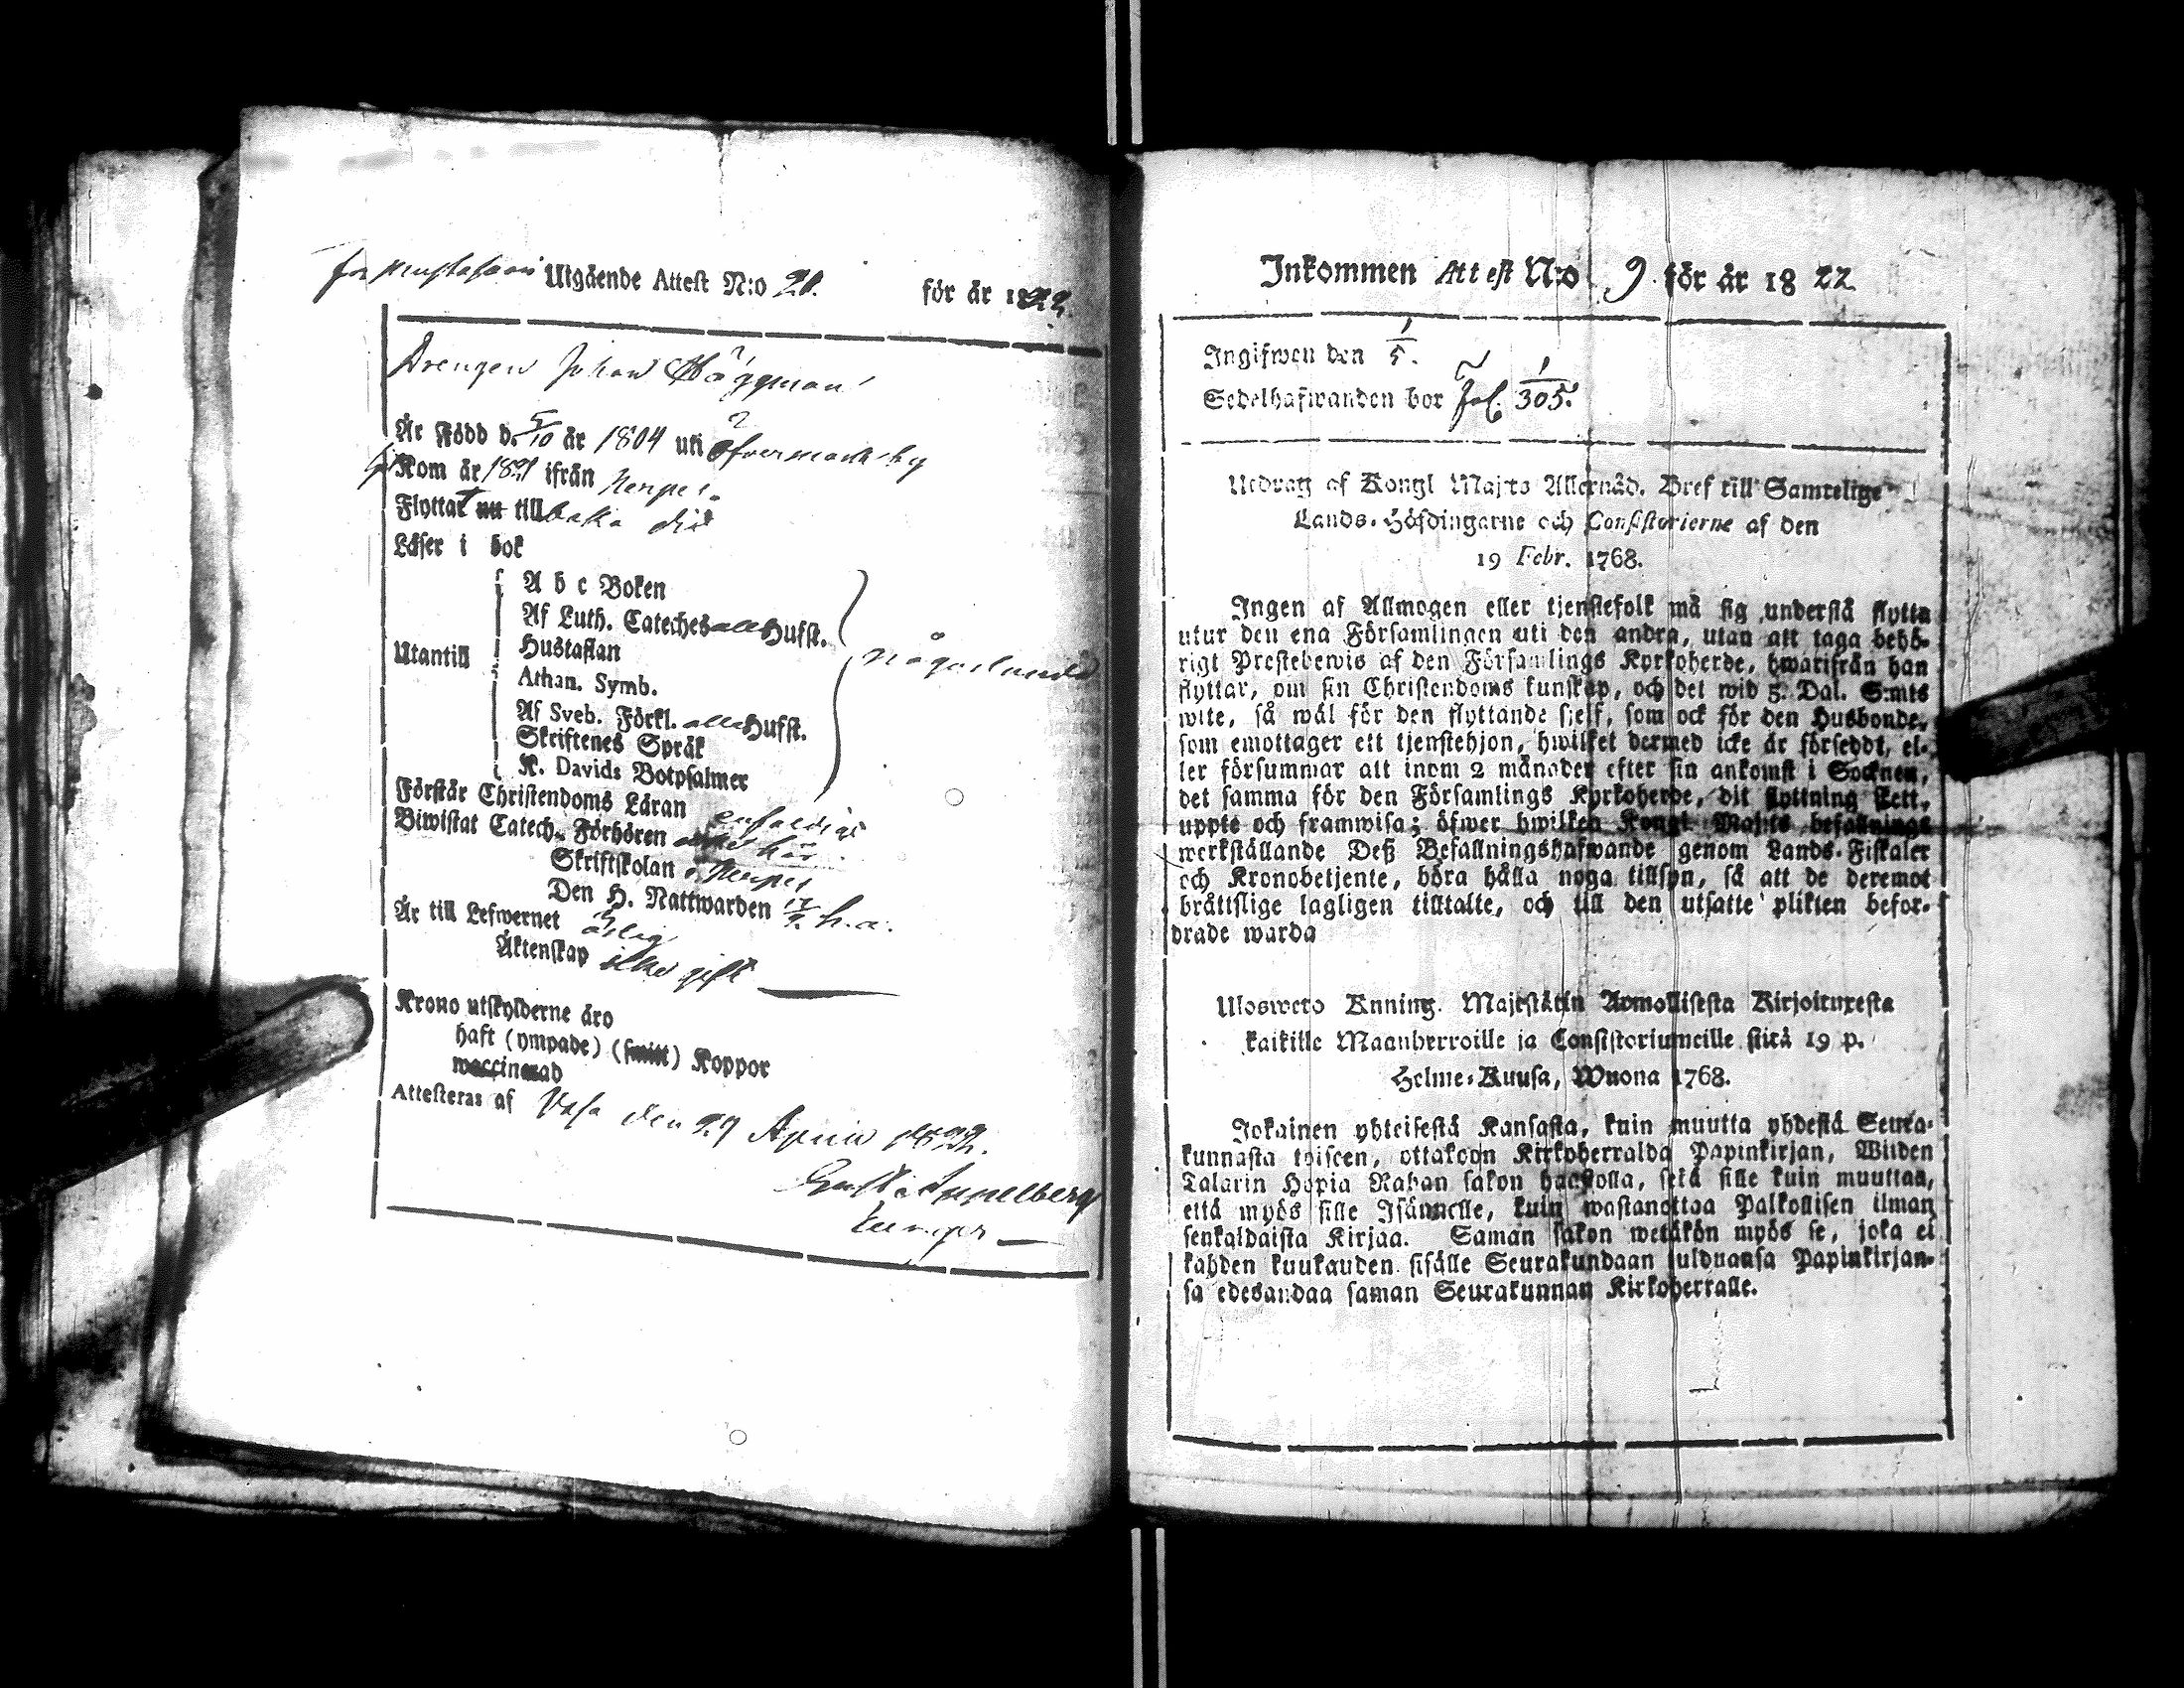 Utgående Attest N:o 21. för år 1822.
Drengen Johan Häggman
Är Född d. 5/10 år 1804 uti Öfvermark by
Kom år 1821 ifrån Nerpes.
Flyttat nu till baka dit
Läser i bok
A b c Boken
Af Luth. Cateches alla Hufst.
Utantill Hustaflan någorlunda
Athan. Symb.
Af Sveb. Förkl. alla Hufst.
Skriftenes Språk
K. Davids Botpsalmer
Förstår Christendoms Läran enfaldigt
Biwistat Catech. Förhören
Skriftskolan i Nerpes
Den H. Nattwarden h.a.
Är till Lefwernet ärlig
Äktenskap icke gift
Krono utskylderne äro
haft (ympade) (smitt) Koppor
waccinerad
Attesteras af Vasa den 29 April 1822.
Inkommen Attest N:o 9. för år 1822
Ingifwen den 1/5.
Sedelhafwanden bor Fol. 305.
Utdrag af Kongl Maj:ts Allernåd. Bref till Samtelige
Lands-Höfdingarne och Consistorierne af den
19 Febr. 1768.
Ingen af Allmogen eller tjenstefolk må sig understå flytta
utur den ena Församlingen uti den andra, utan att taga behö-
rigt Prestebewis af den Församlings Kyrkoherde, hwarifrån han
flyttar, om sin Christendoms kunskap, och det wid 5. Dal. S:mts
wite, så wäl för den flyttande sjelf, som ock för den Husbonde,
som emottager ett tjenstehjon, hwilket dermed icke är försedt, el-
ler försummar att inom 2 månader efter sin ankomst i Socknen,
det samma för den Församlings Kyrkoherde, dit flyttning skett,
uppte och framwisa; öfwer hwilken Kongl Maj:ts befallnings
werkställande Deß Befallningshafwande genom Lands-Fiskaler
och Kronobetjente, böra hålla noga tillsyn, så att de deremot
bråttslige lagligen tilltalte, och till den utsatte plikten befor-
drade warda
Ulosweto Kuning. Majestätin Armollisesta Kirjoituxesta
kaikille Maanherroille ja Consistoriumeille siitä 19 p.
Helme-Kuusa, Wuona 1768.
Jokainen yhteisestä Kansasta, kuin muutta yhdestä Seura-
kunnasta toiseen, ottakoon Kirkoherralda Papinkirjan, Wiiden
Talarin Hopia Rahan sakon haastolla, sekä sille kuin muuttaa,
että myös sille Isännelle, kuin wastanottaa Palkollisen ilman
senkaldaista Kirjaa. Saman sakon wetäkön myös se, joka ei
kahden kuukauden sisälle Seurakundaan tulduansa Papinkirjan-
sa edesandaa saman Seurakunnan Kirkoherralle.